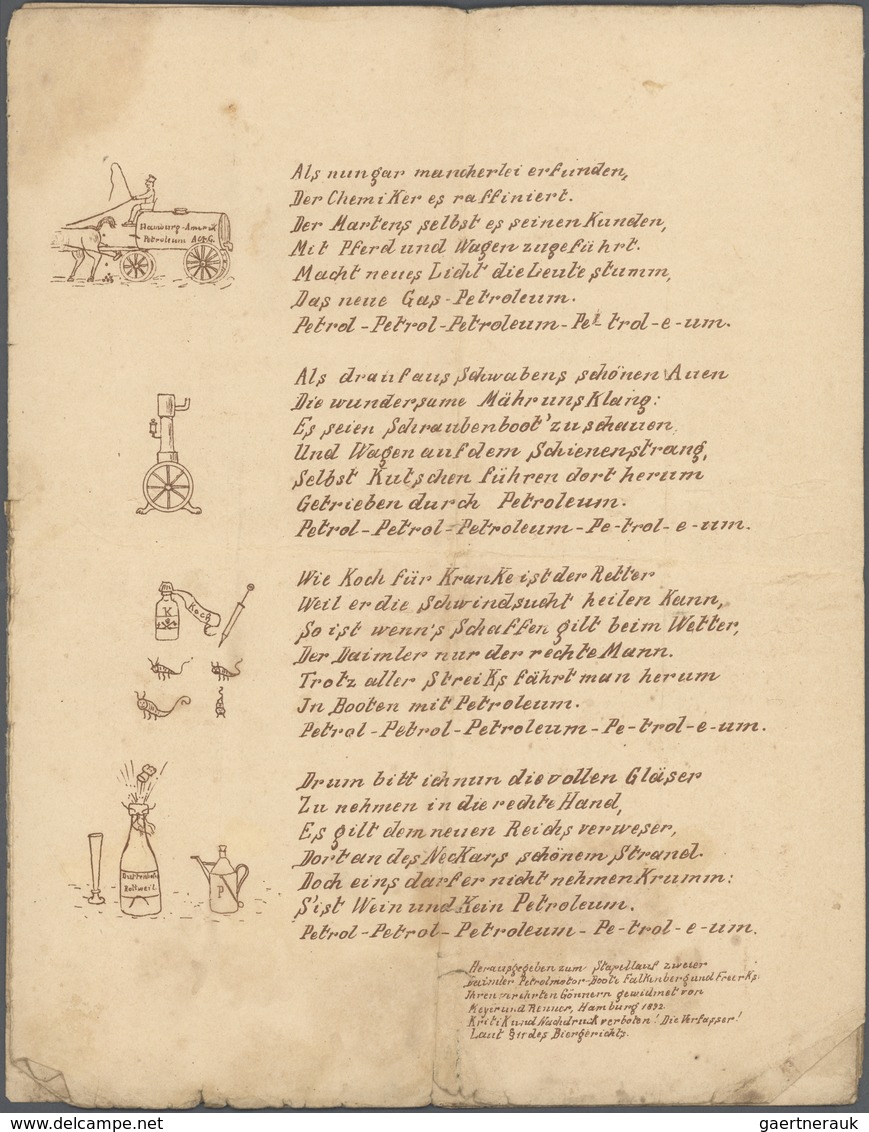 Als nun gar mancherlei erfunden,
Der Chemiker es raffiniert.
Der Martens selbst es seinen Kunden,
Mit Pferd und Wagen zugeführt.
Macht neues Licht die Leute stumm,
Das neue Gas-Petroleum.
Petrol-Petrol-Petroleum-Pe-trol-e-um.
Hamburg-Amerik
Petroleum Act-G.
Als drauf aus Schwabens schönen Auen
Die wundersame Mähr uns Klang:
Es seien Schraubenboot' zu schauen
Und Wagen auf dem Schienenstrang,
Selbst Kutschen führen dort herum
Getrieben durch Petroleum.
Petrol-Petrol-Petroleum-Pe-trol-e-um.
Wie Koch für Kranke ist der Retter
Weil er die Schwindsucht heilen Kann,
So ist wenn's Schaffen gilt beim Wetter,
Der Daimler nur der rechte Mann.
Trotz aller Streiks fährt man herum
In Booten mit Petroleum.
Petrol-Petrol-Petroleum-Pe-trol-e-um.
K
Koch
Drum bitt ich nun die vollen Gläser
Zu nehmen in die rechte Hand,
Es gilt dem neuen Reichsverweser,
Dort an des Neckars schönem Strand.
Doch eins darf er nicht nehmen Krumm:
S'ist Wein und Kein Petroleum.
Petrol-Petrol-Petroleum-Pe-trol-e-um.
Rottweil
P
Herausgegeben zum Stapellauf zweier
Daimler Petrolmotor-Boote Falkenberg und Freerks.
Ihren verehrten Gönnern gewidmet von
Meyer und Renner, Hamburg 1892
Kritik und Nachdruck verboten! Die Verfasser!
Laut §11 des Biergerichts.
www.delcampe.net
gaertnerauk